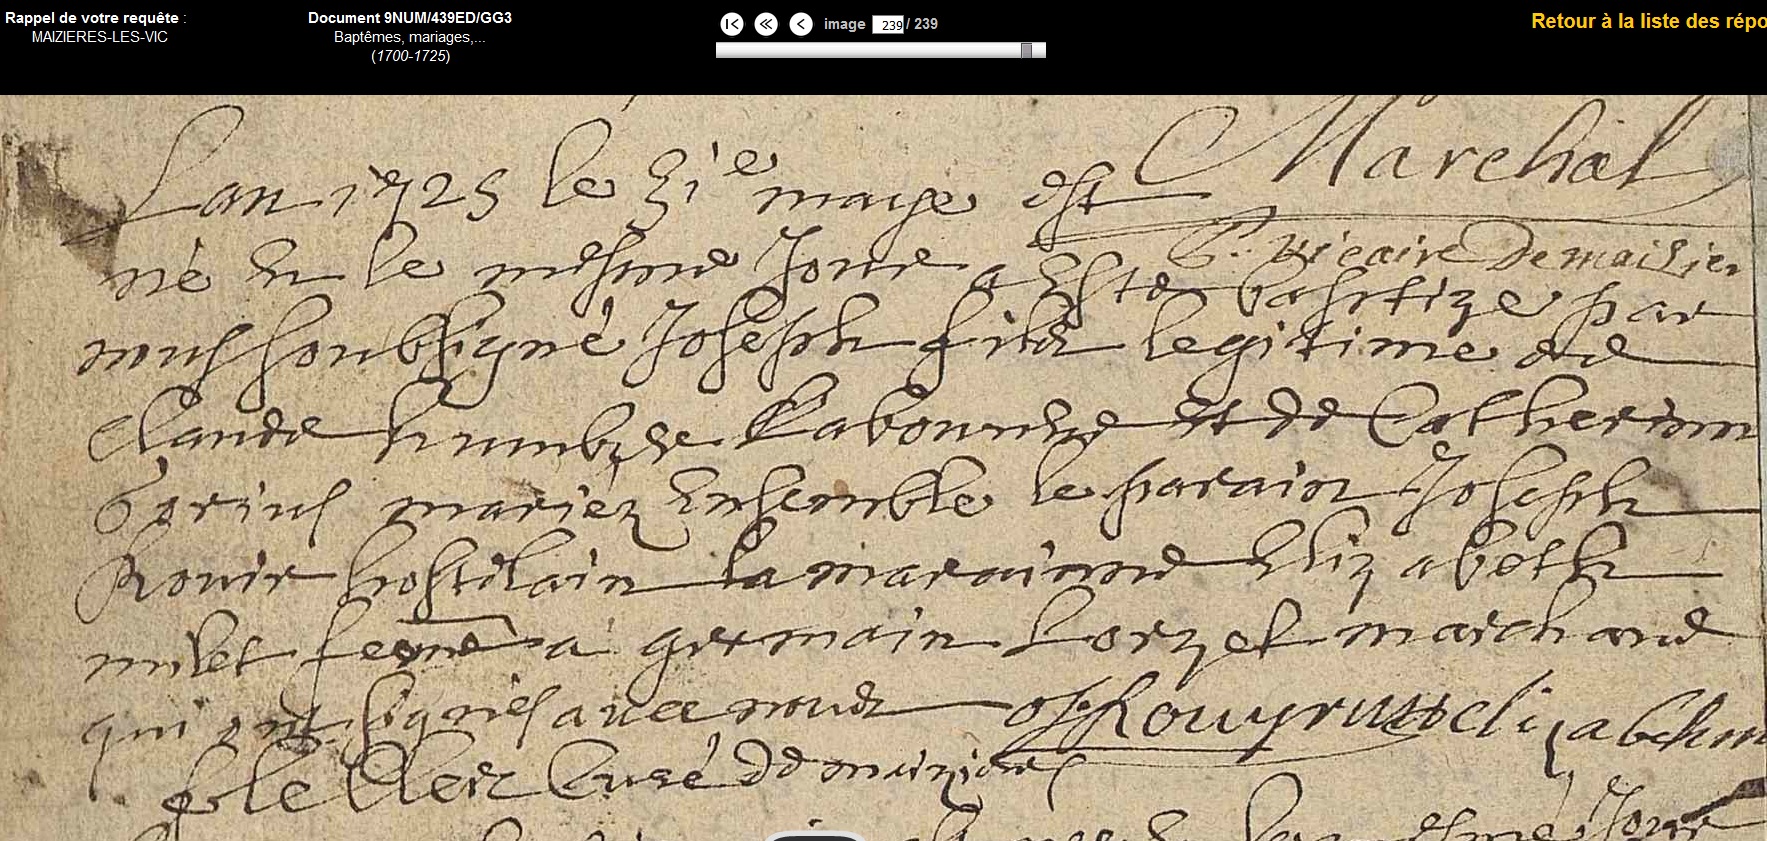 Rappel de votre requête :
MAIZIERES-LES-VIC
Document 9NUM/439ED/GG3
Baptêmes, mariages,...
(1700-1725)
image 239 / 239
Retour à la liste des répo
Marchal
Lan 1725 le 31e maye est
P. vicaire De maisier
né en le mesme Jour a Esté baptize par
nous soubsigné Joseph fils legitime de
Claude humbze Labourure et de Catherinn
mariez Ensemble le parain Joseph
Rouir hostelain la maraine Eliz abeth
milet feme a germain marchand
qui ont signés avec nous Rouyr eliz abeth m
Curé de maiziers